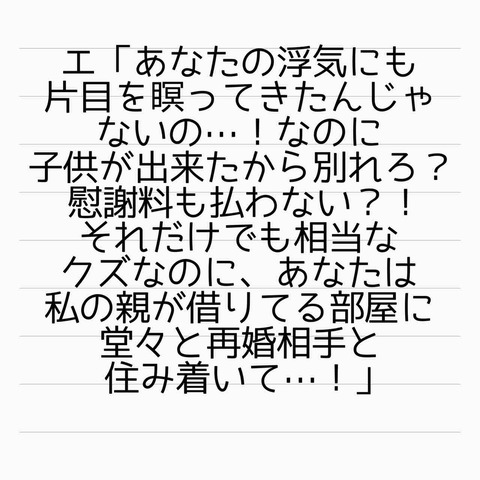 エ「あなたの浮気にも
片目を瞑ってきたんじゃ
ないの…！なのに
子供が出来たから別れろ？
慰謝料も払わない？！
それだけでも相当な
クズなのに、あなたは
私の親が借りてる部屋に
堂々と再婚相手と
住み着いて…！」